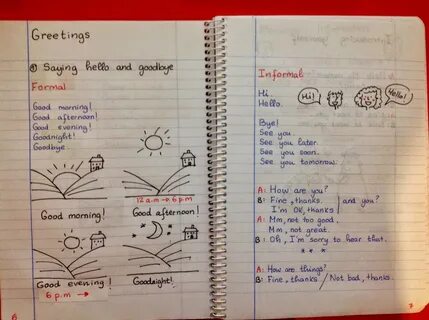 Greetings
Saying hello and goodbye
Formal
Good morning!
Good afternoon!
Good evening!
Goodnight!
Goodbye.
12 a.m → 6 p.m
Good morning!
Good afternoon!
Good evening!
Goodnight!
6 p.m →
6
Informal
Hi.
Hello.
Hi!
Hello!
Bye!
See you.
See you later.
See you soon.
See you tomorrow.
A: How are you?
B: Fine, thanks. and you?
I'm OK, thanks
A: Mm, not too good.
Mm, not great.
B: Oh, I'm sorry to hear that.
* * *
A: How are things?
B: Fine, thanks / Not bad, thanks.
7